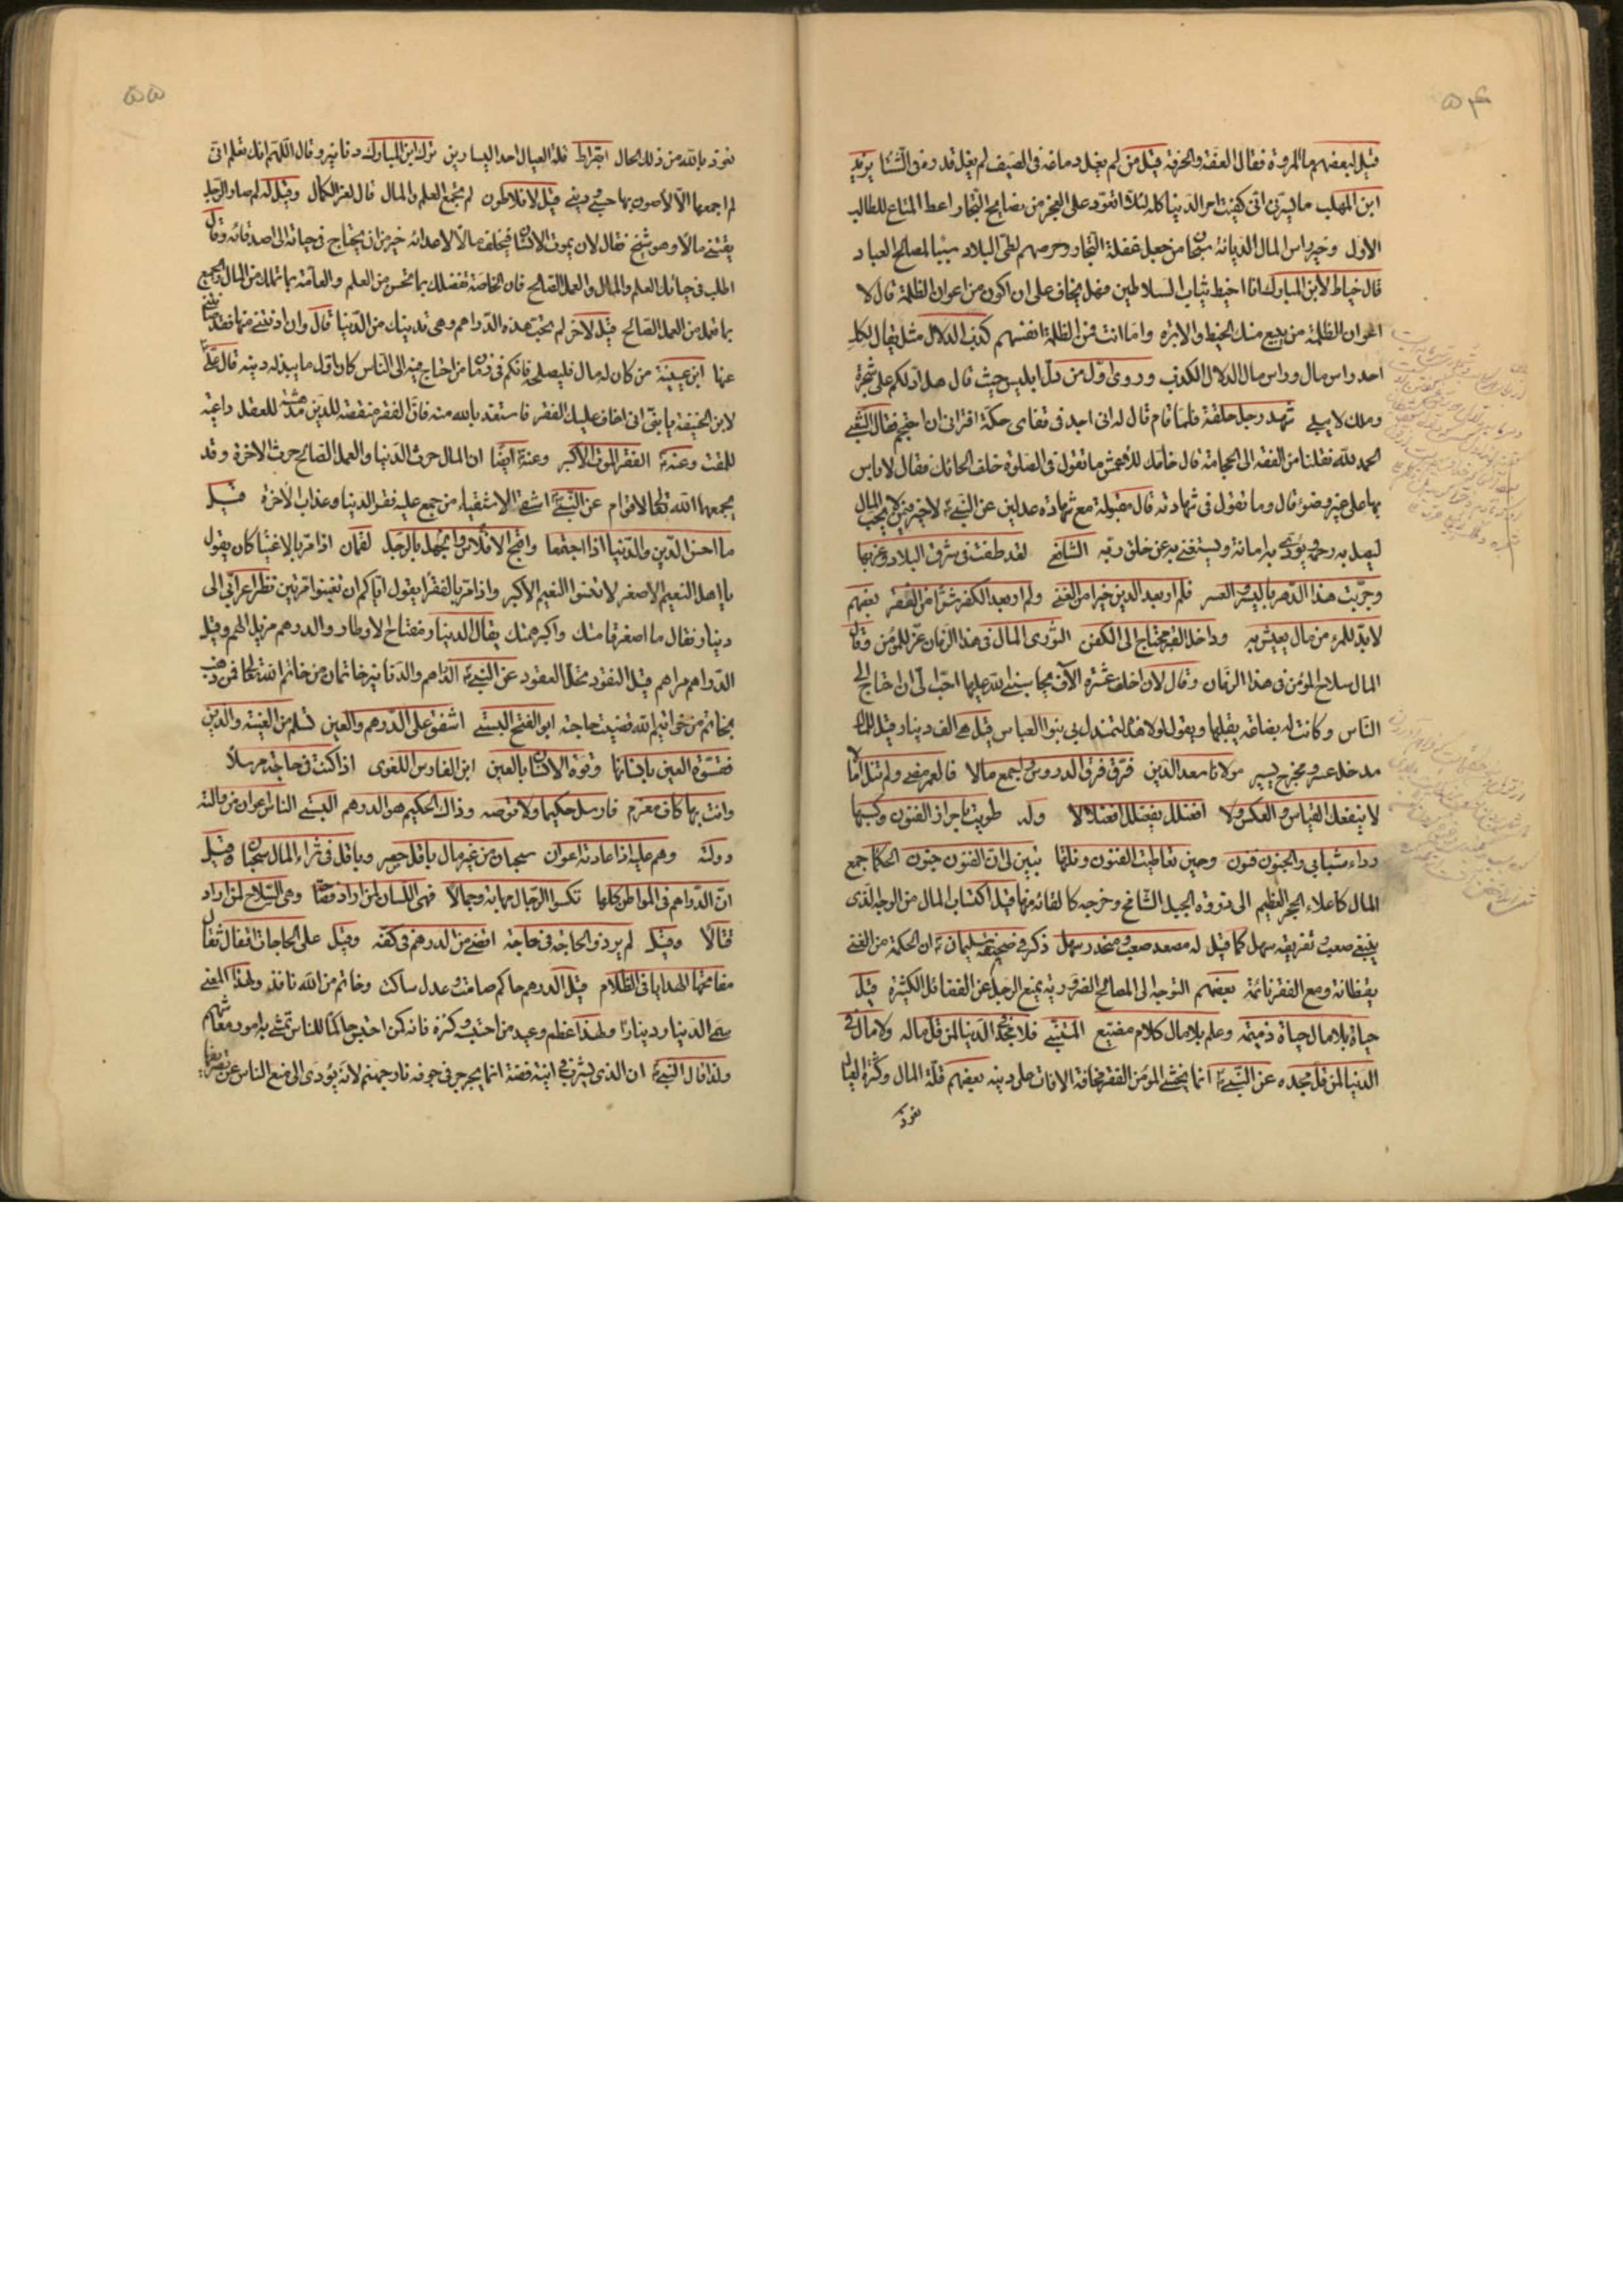 ۵۴
قيل لبعضهم ما المروة فقال العفة والحرفة قيل من لم يغل دماغه فى الصيف لم يغل قدره فى الشتا يزيد
ابن المهلب ما يسرنى انى كفيت امر الدنيا كله لئلا اتعود على العجز من نصايح التجار اعط المتاع للطالب
الاول وخير راس المال الديانة سبحان من جعل غفلة التجار وحرصهم لطى البلاد سببا لمصالح العباد
قال خياط لابن المبارك انا اخيط ثياب السلاطين فهل يخاف على ان اكون من اعوان الظلمة قال لا
اعوان الظلمة من يبيع منك الخيط والابرة واما انت فمن الظلمة انفسهم كذب الدلال مثل يقال لكل
احد راس مال وراس مال الدلال الكذب وروى اول من دل ابليس حيث قال هل ادلكم على شجرة
وملك لا يبلى شهد رجل حلقة فلما قام قال له انى اجد فى قفاى حكة افترانى ان احتجم فقال الشعبى
الحمد لله نقلنا من الفقه الى الحجامة قال حائك للاعمش ما تقول فى الصلوة خلف الحائك فقال لا باس
بها على غير وضوء قال وما تقول فى شهادته قال مقبولة مع شهادة عدلين عن النبى لا خير فيمن لا يحب المال
ليصل به رحمه ويؤدى به امانة ويستغنى به عن خلق ربه الشافعى لقد طفت فى شرق البلاد وغربها
وجربت هذا الدهر باليسر والعسر فلم ار بعد الدين خيرا من الغنى ولم ار بعد الكفر شرا من الفقر بعضهم
لا بد للمرء من مال يعيش به وداخل القبر محتاج الى الكفن الثورى المال فى هذا الزمان عز للمؤمن وقال
المال سلاح المؤمن فى هذا الزمان وقال لان اخلف عشرة الآف يحاسبنى الله عليها احب الى ان احتاج الى
الناس وكانت له بضاعة يقلبها ويقول لولا هذا لتمندل بى بنوا العباس قيل هى الف دينار قيل للمال
مدخل عسر ومخرج يسير مولانا سعد الدين فرق فرق الدروس واجمع مالا فالعمر مضى ولم تنل آمالا
لا ينفعك القياس والعكس ولا افعنلل يفعنلل افعنلالا وله طويت باحراز الفنون وكسبها
رداء شبابى والجنون فنون وحين تعاطيت الفنون ونلتها تبين لى ان الفنون جنون الحكما جمع
المال كاعلاء الحجر العظيم الى ذروة الجبل الشامخ وخرجه كالقائه منها قيل اكتساب المال من الوجه الذى
ينبغى صعب وتفريقه سهل كما قيل له مصعد صعب ومنحدر سهل ذكر فى صحيفة سليمان ان الحكمة مع الغنى
يقظانة ومع الفقر نائمة بعضهم التوجه الى المصالح الضرورية يمنع الرجل عن الفضائل الكثيرة قيل
حياة بلا مال حياة ذميمة وعلم بلا مال كلام مضيع المتنبى فلا مجد فى الدنيا لمن قل ماله ولا مال فى
الدنيا لمن قل مجده عن النبى انما يخشى المؤمن الفقر مخافة الافات على دينه بعضهم قلة المال وكثرة العيال
نعوذ
۵۵
نعوذ بالله من ذلك الحال بقراط قلة العيال احد اليسارين ترك ابن المبارك دنانير وقال اللهم انك تعلم انى
لم اجمعها الا لاصون بها حسبى ودينى قيل لافلاطون لم لا يجتمع العلم والمال قال لعز الكمال وقيل له لم صار الرجل
يقتنى مالا وهو شيخ فقال لان يموت الانسان فيخلف مالا لاعدائه خير من ان يحتاج فى حياته الى اصدقائه وقال
اطلب فى حياتك العلم والمال والعمل الصالح فان الخاصة تفضلك بما تحسن من العلم والعامة بما تملك من المال والجميع
بما تعمل من العمل الصالح قيل لآخر لم تحب هذه الدراهم وهى تدنيك من الدنيا قال وان ادنتنى منها فقد صانتنى
عنها ابن عيينة من كان له مال فليصلحه فانكم فى زمان من احتاج فيه الى الناس كان اول ما يبذله دينه قال على
لابن الحنفية يا بنى انى اخاف عليك الفقر فاستعذ بالله منه فان الفقر منقصة للدين مدهشة للعقل داعية
للمقت وعنه الفقر الموت الاكبر وعنه ايضا ان المال حرث الدنيا والعمل الصالح حرث الاخرة وقد
يجمعهما الله تعالى لاقوام عن النبى اشقى الاشقياء من جمع عليه فقر الدنيا وعذاب الآخرة قيل
ما احسن الدين والدنيا اذا اجتمعا واقبح الافلاس والجهل بالرجل لقمان اذا مر بالاغنيا كان يقول
يا اهل النعيم الاصغر لا تنسوا النعيم الاكبر واذا مر بالفقرا يقول اياكم ان تغبنوا مرتين نظر اعرابى الى
دينار فقال ما اصغر قامتك واكبر همتك يقال الدينار مفتاح الاوطار والدرهم مزيل الهم وقيل
الدراهم مراهم قيل النقود تحل العقود عن النبى الدراهم والدنانير خاتمان من خاتم الله تعالى فمن ذهب
بخاتم من خواتيم الله قضيت حاجته ابو الفتح البستى اشفق على الدرهم والعين تسلم من العينة والدين
فقوة العين بانسانها وقوة الانسان بالعين ابن الفارس اللغوى اذا كنت فى حاجة مرسلا
وانت بها كلف مغرم فارسل حكيما ولا توصه وذاك الحكيم هو الدرهم البستى الناس اعوان من والته
دولته وهم عليه اذا عادته اعوان سحبان من غير مال باقل حصر وباقل فى ثراء المال سحبان قيل
ان الدراهم فى المواطن كلها تكسوا الرجال مهابة وجمالا فهى اللسان لمن اراد فصاحة وهى السلاح لمن اراد
قتالا وقيل لم يرد ذو الحاجة فى حاجة اقضى من الدرهم فى كفه وقيل على الحاجات اقفال ثقال
مفاتحها الهدايا فى الظلام قيل الدرهم حاكم صامت وعدل ساكت وخاتم من الله نافذ ولهذا المعنى
سمى الدينار دينارا ولهذا عظم وعيد من احتبسه وكنزه فانه كمن احتبس حاكما للناس تمشى به امور معاشهم
ولذا قال النبى ان الذى يشرب فى آنية فضة انما يجرجر فى جوفه نار جهنم لانه يؤدى الى منع الناس عن